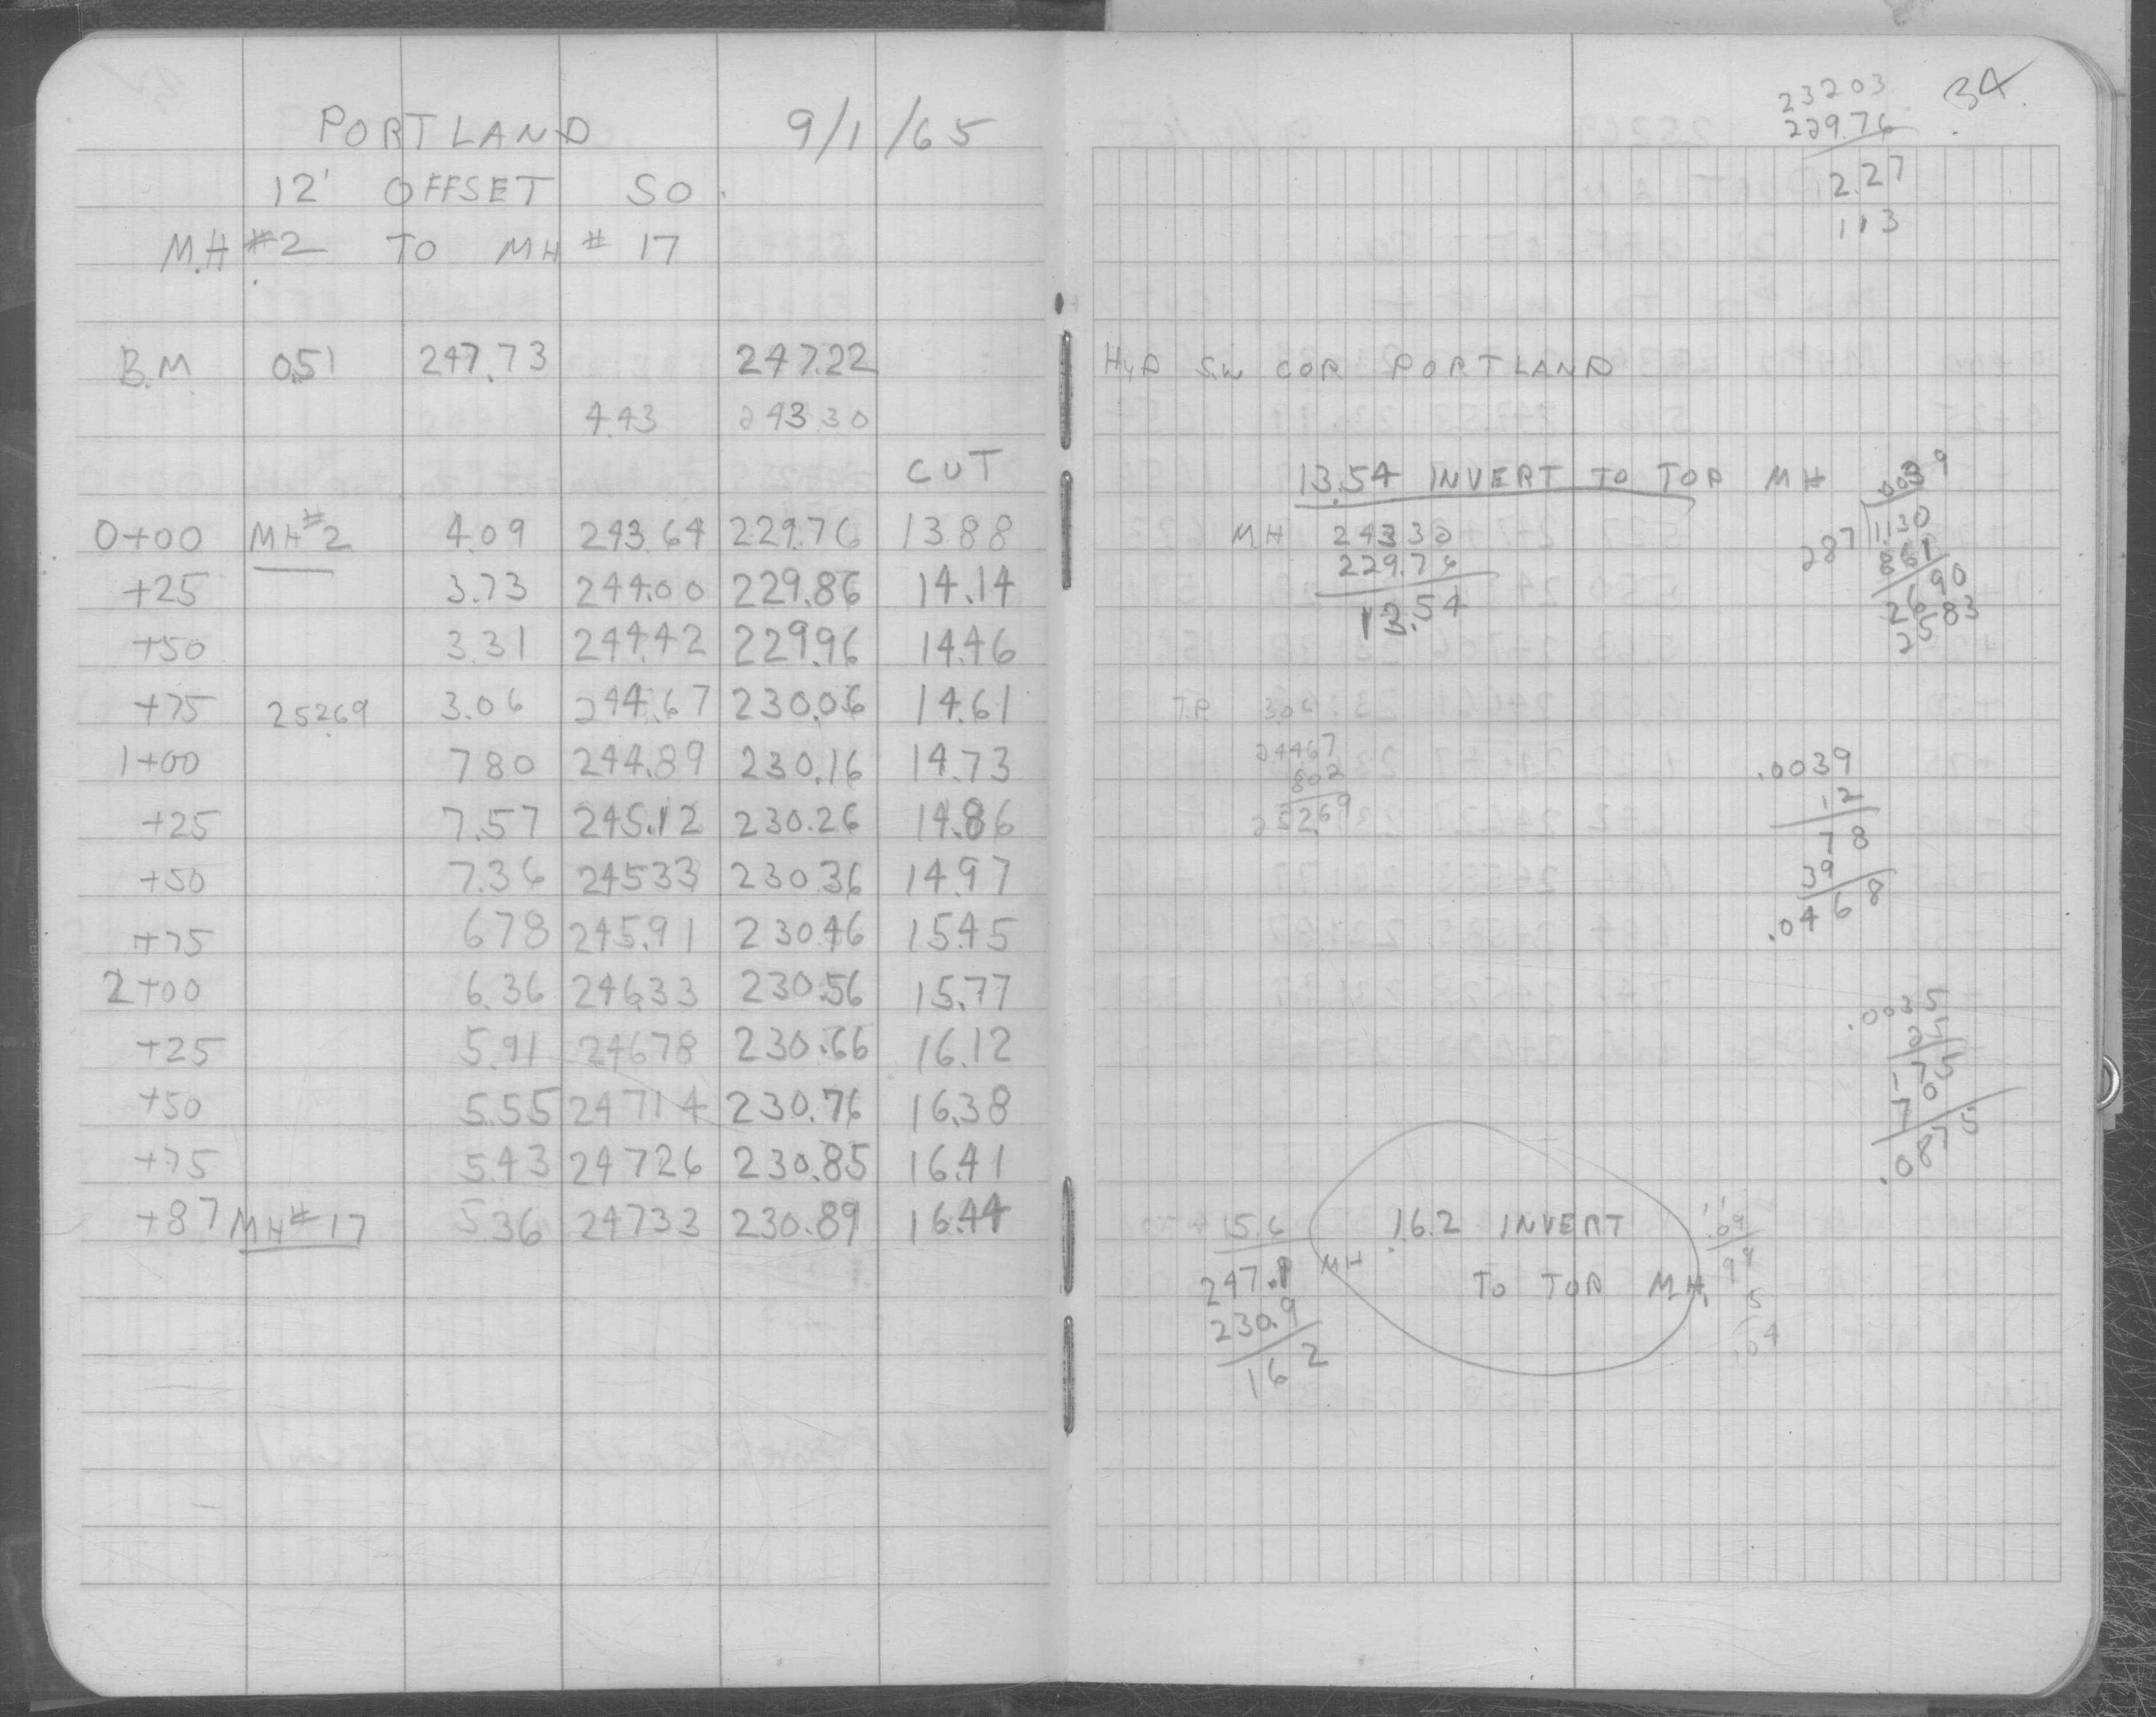 PORTLAND 9/1/65
12' OFFSET SO.
M.H #2 TO MH # 17
B.M 0.51 247.73 247.22
4.43 243.30
CUT
0+00 MH #2 4.09 243.64 229.76 13.88
+25 3.73 244.00 229.86 14.14
+50 3.31 244.42 229.96 14.46
+75 25269 3.06 244.67 230.06 14.61
1+00 780 244.89 230.16 14.73
+25 7.57 245.12 230.26 14.86
+50 7.36 24533 230.36 14.97
+75 678 245.91 230.46 15.45
2+00 6.36 246.33 230.56 15.77
+25 5.91 24678 230.66 16.12
+50 5.55 24714 230.76 16.38
+75 5.43 24726 230.85 16.41
+87 MH # 17 5.36 24733 230.89 16.44
34
23203
229.76
2.27
113
HYD S.W COR PORTLAND
13.54 INVERT TO TOP MH
MH 24330
229.76
13.54
.0039
287 1.130
861
2690
2583
T.P. 306
24467
802
252.69
.0039
12
78
39
.0468
.0035
25
175
70
.0875
5.6
247.1 MH
230.9
16 2
16.2 INVERT
TO TOP M.H.